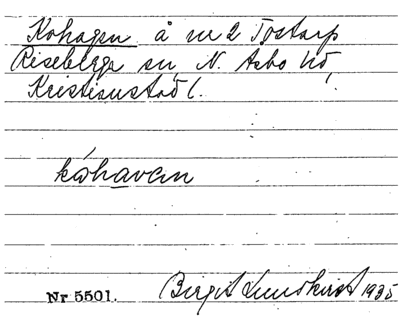 Kohagen å nr 2 Tostarp
Riseberga sn N. Åsbo hd,
Kristianstad l.
kóhavan
Nr 5501. Birgit Lundkvist 1935